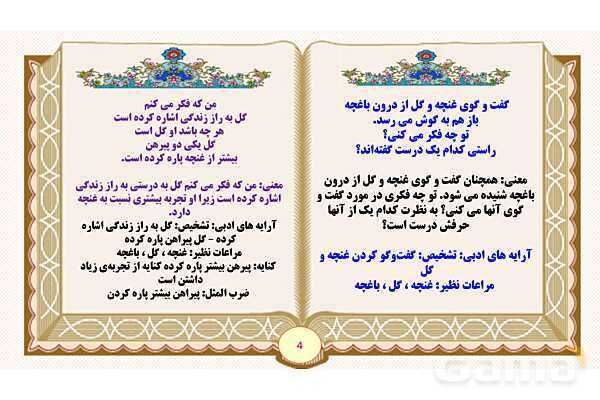 گفت و گوی غنچه و گل از درون باغچه
باز هم به گوش می رسد.
تو چه فکر می کنی؟
راستی کدام یک درست گفته‌اند؟
معنی: همچنان گفت و گوی غنچه و گل از درون
باغچه شنیده می شود. تو چه فکری در مورد گفت و
گوی آنها می کنی؟ به نظرت کدام یک از آنها
حرفش درست است؟
آرایه های ادبی: تشخیص: گفت‌وگو کردن غنچه و
گل
مراعات نظیر: غنچه ، گل ، باغچه
من که فکر می کنم
گل به راز زندگی اشاره کرده است
هر چه باشد او گل است
گل یکی دو پیرهن
بیشتر از غنچه پاره کرده است.
معنی: من که فکر می کنم گل به درستی به راز زندگی
اشاره کرده است زیرا او تجربه بیشتری نسبت به غنچه
دارد.
آرایه های ادبی: تشخیص: گل به راز زندگی اشاره
کرده - گل پیراهن پاره کرده
مراعات نظیر: غنچه ، گل ، باغچه
کنایه: پیرهن بیشتر پاره کرده کنایه از تجربه‌ی زیاد
داشتن است
ضرب المثل: پیراهن بیشتر پاره کردن
4
Gama